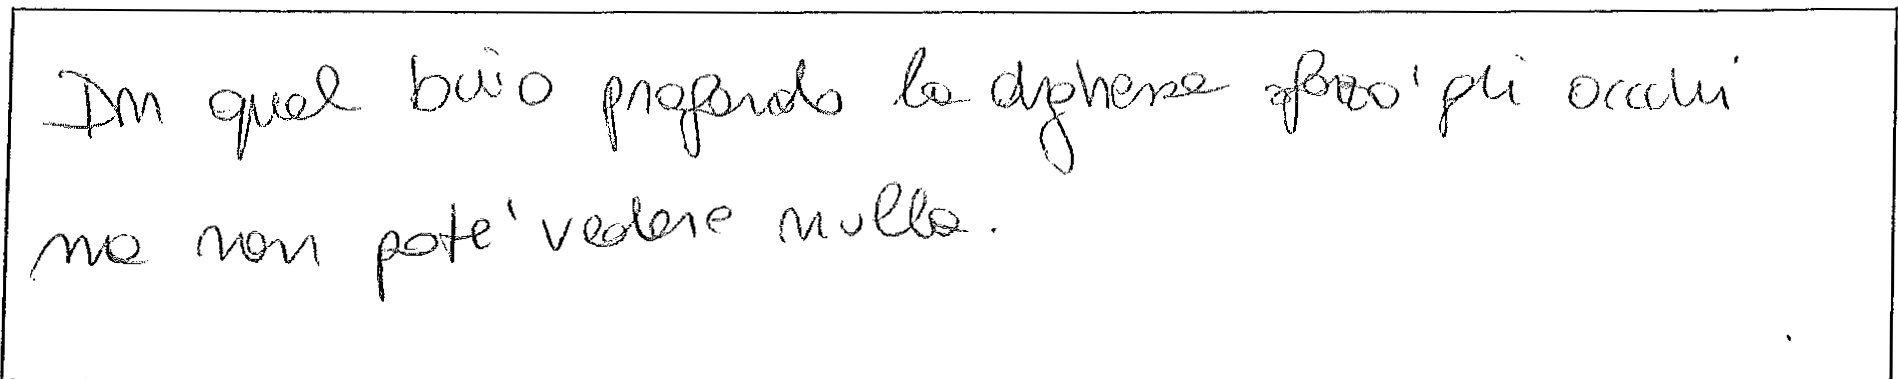 In quel buio profondo la sforzo' gli occhi
ma non pote' vedere nulla.